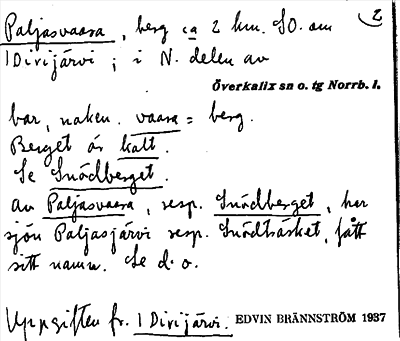 2
Paljasvaara, berg ca 2 km. SO. om
1 Divijärvi; i N. delen av
Överkalix sn o. tg Norrb. l.
bar, naken. vaara = berg.
Berget är kalt.
Se Snödberget.
av Paljasvaara, resp. Snödberget, har
sjön Paljasjärvi resp. Snödträsket, fått
sitt namn. Se d. o.
Uppgiften fr. 1 Divijärvi. EDVIN BRÄNNSTRÖM 1937